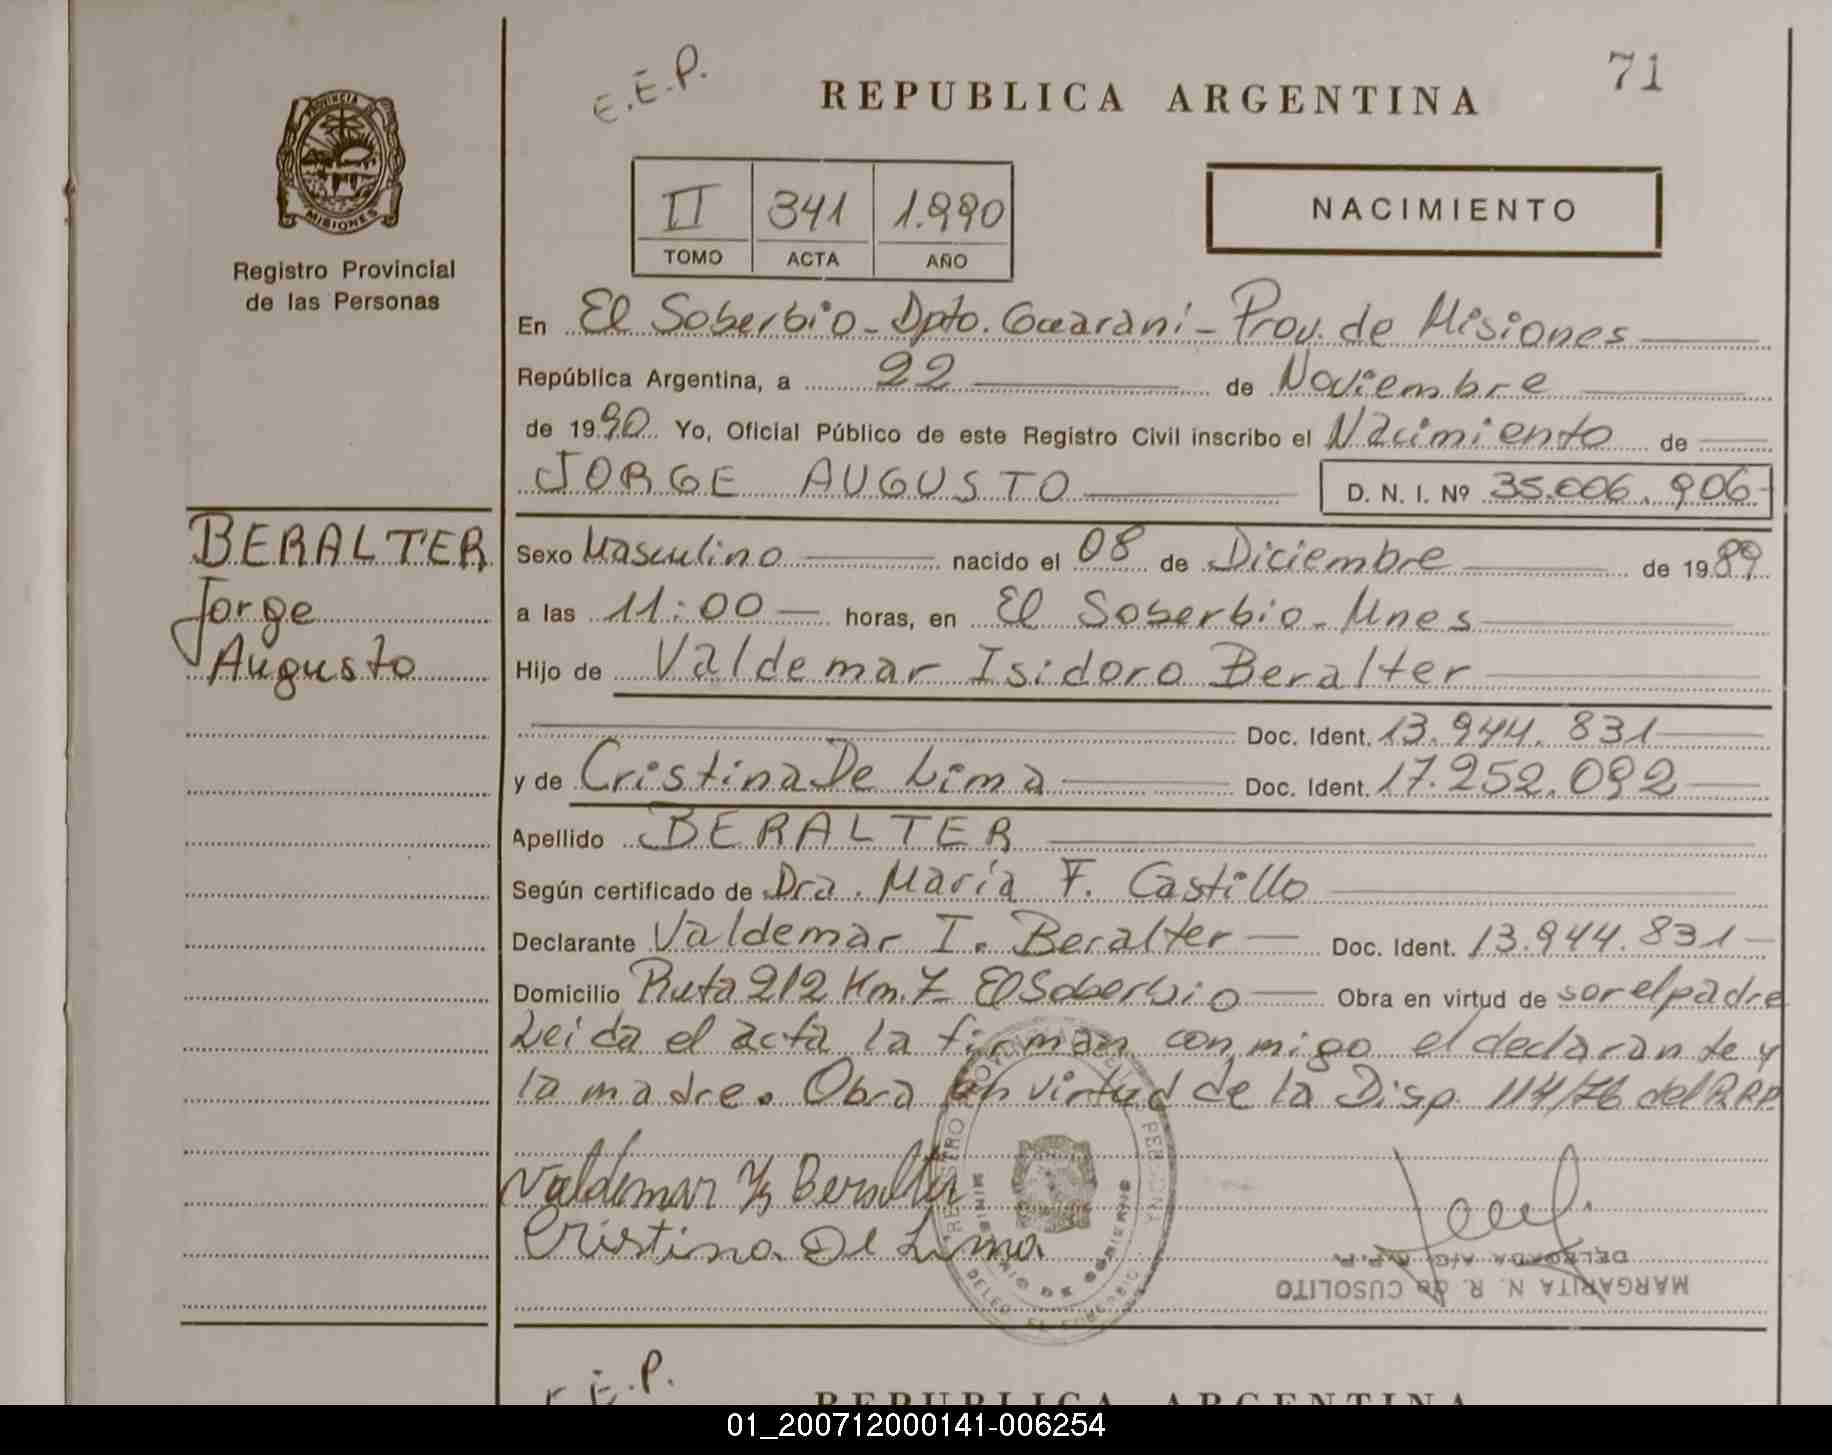 71
E.E.P.
REPUBLICA ARGENTINA
PROVINCIA
MISIONES
Registro Provincial
de las Personas
II 341 1.990
TOMO ACTA AÑO
NACIMIENTO
En El Soberbio - Dpto. Guaraní - Prov. de Misiones
República Argentina, a 22 de Noviembre
de 1990 Yo, Oficial Público de este Registro Civil inscribo el Nacimiento de
JORGE AUGUSTO D. N. I. Nº 35.006.906
BERALTER
Jorge
Augusto
Sexo Masculino nacido el 08 de Diciembre de 1989
a las 11:00 horas, en El Soberbio - Mnes
Hijo de Valdemar Isidoro Beralter
Doc. Ident. 13.944.831
y de Cristina De Lima Doc. Ident. 17.252.092
Apellido BERALTER
Según certificado de Dra. María F. Castillo
Declarante Valdemar I. Beralter Doc. Ident. 13.944.831
Domicilio Ruta 212 Km. 7 El Soberbio Obra en virtud de ser el padre
Leida el acta la firman conmigo el declarante y
la madre. Obra en virtud de la Disp. 114/76 del R.P.P.
Valdemar Beralter
Cristina De Lima
MINISTERIO DE GOBIERNO
DELEGADA A/C R.P.P.
MARGARITA N. R. de CUSOLITO
E.E.P.
REPUBLICA ARGENTINA
01_200712000141-006254